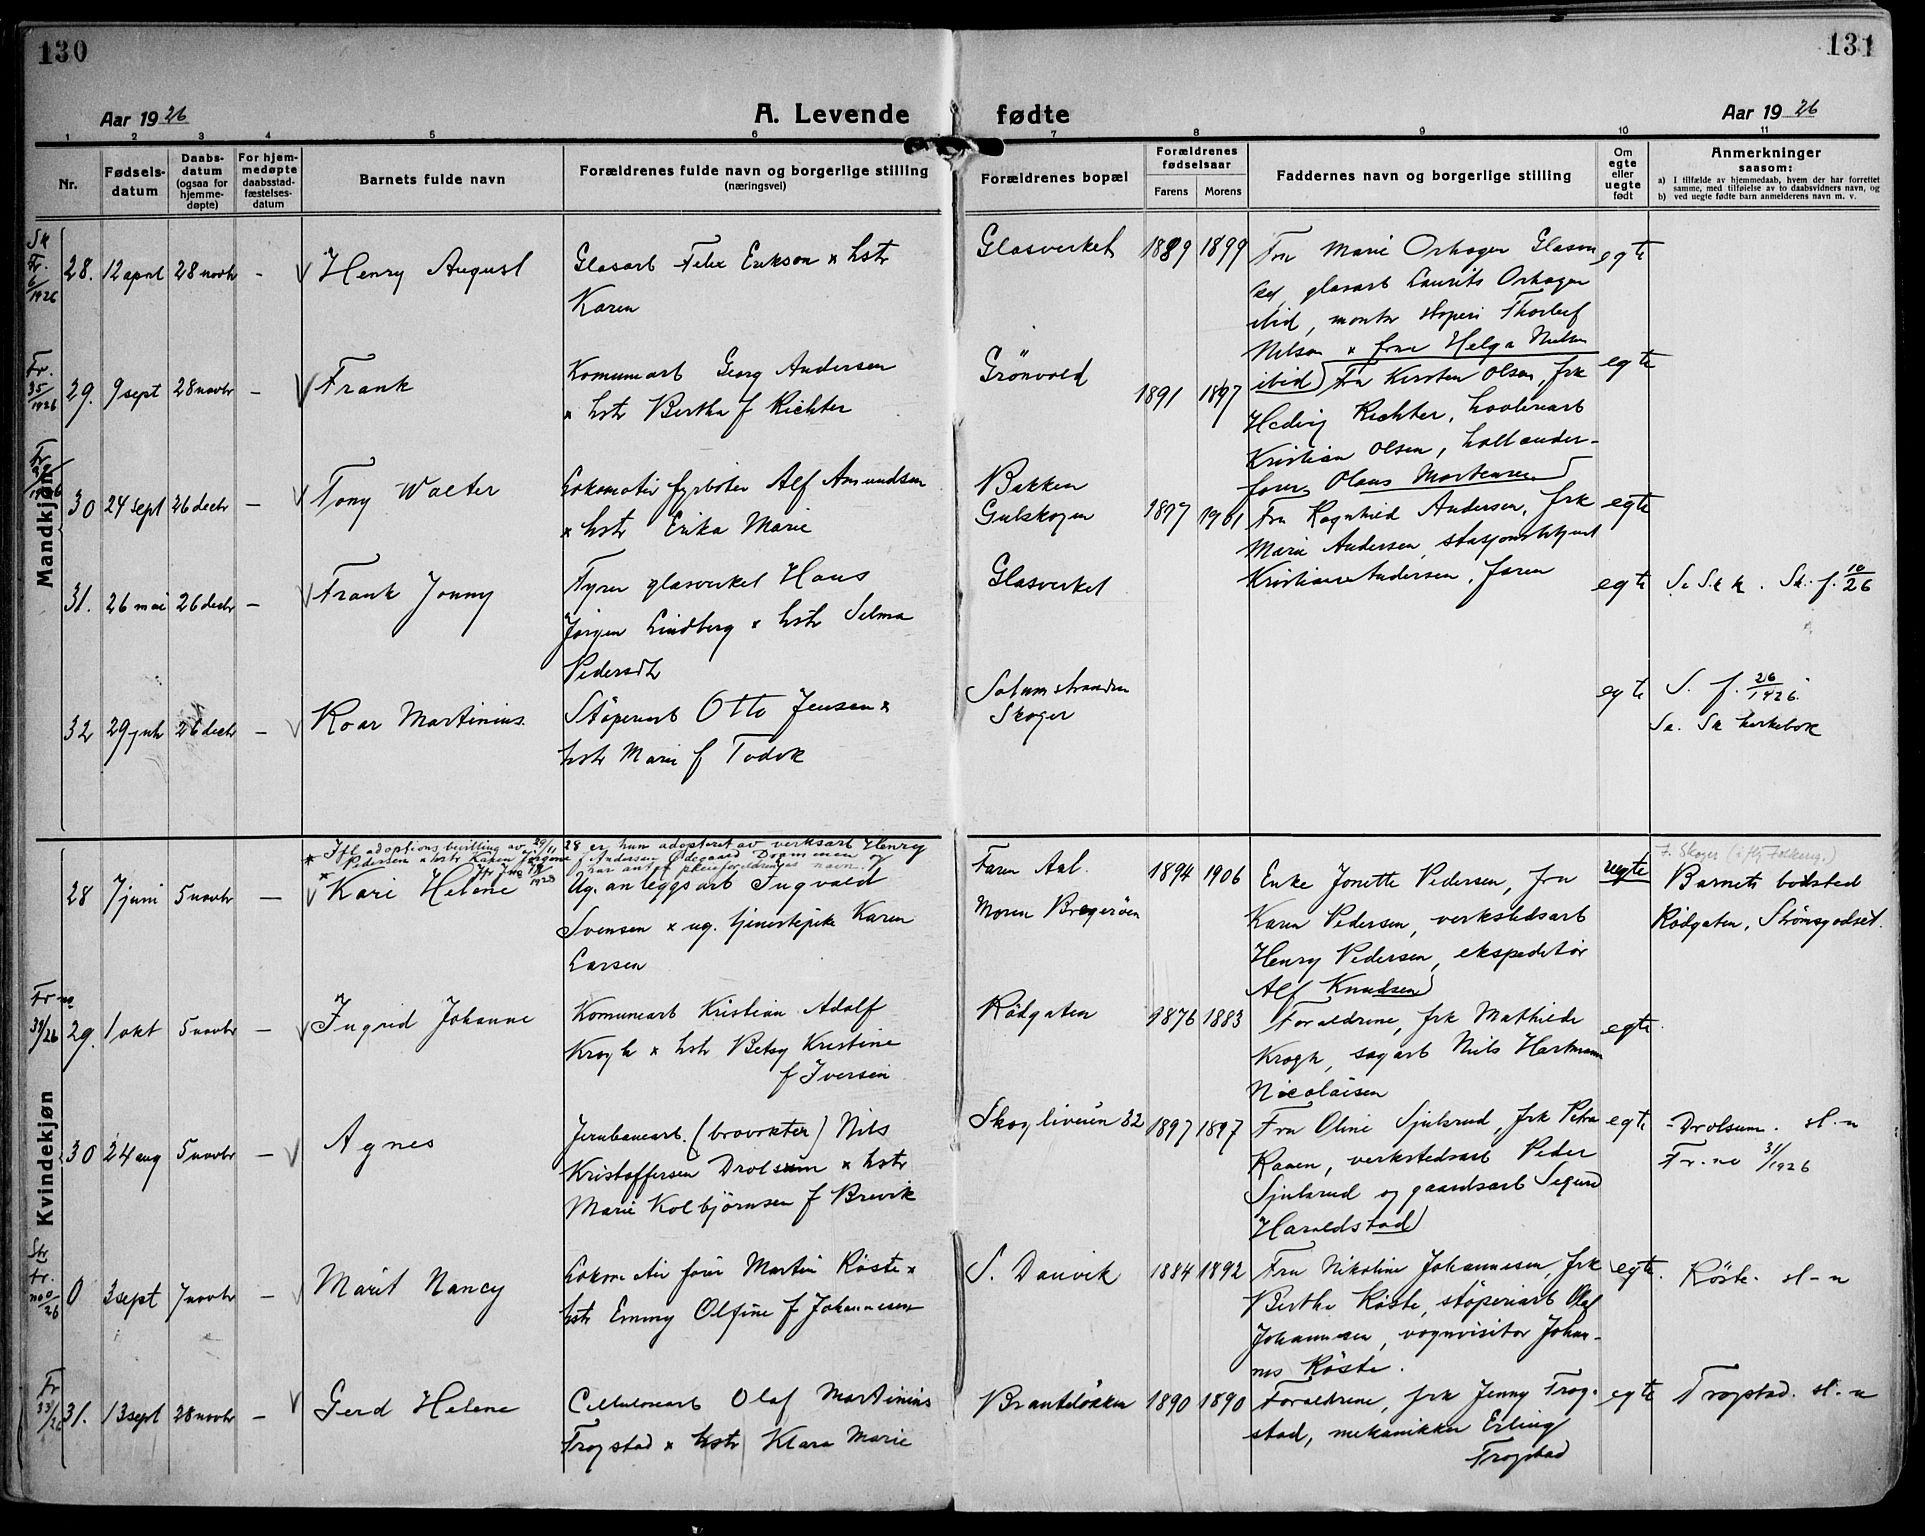 130
131
Aar 1926
A. Levende fødte
Aar 1926
1 2 3 4 5 6 7 8 9 10 11
Nr.
Fødsels-
datum
Daabs-
datum
(ogsaa for
hjemme-
døpte)
For hjem-
medøpte
daabsstad-
fæstelses-
datum
Barnets fulde navn
Forældrenes fulde navn og borgerlige stilling
(næringsvei)
Forældrenes bopæl
Forældrenes
fødselsaar
Farens Morens
Faddernes navn og borgerlige stilling
Om
egte
eller
uegte
født
Anmerkninger
saasom:
a) I tilfælde av hjemmedaab, hvem der har forrettet
samme, med tilføielse av to daabsvidners navn, og
b) ved uegte fødte barn anmelderens navn m. v.
Mandkjøn
Sk
Fr.
6/1926
28. 12 april 28 novbr - Henry August
Glasarb Felix Erikson x hstr
Karen
Glasverket 1889 1899
Fru Marie Orhagen Glasv
glasarb Laurits Orhagen
ibid, montør Thorleif
Nilsen x frue Helga Nilsen
ibid
egte
Fr.
35/1926
29. 9 sept 28 novbr - Frank
Komunearb Georg Andersen
x hstr Bertha f Richter
Grönvold 1891 1897
Fru Kirsten Olsen, frk
Hedvig Richter,
Kristian Olsen, hollænder-
fører Olaus Martensen
egte
Fr
30 24 sept 26 decbr - Tony Walter
Lokomotiv fyrbøter Alf Amundsen
x hstr Erika Marie
Bakken
Gulskogen 1897 1901
Fru Ragnhild Andersen, frk
Marie Andersen, stasjonsbetjent
Kristian Andersen, faren
egte
31. 26 mai 26 decbr - Frank Jonny
Fyrer glasverket Hans
Jørgen Lindberg x hstr Selma
Pedersdtr
Glasverket
egte
Se Sk k. Sk. f. 10/26
32 29 juli 26 decbr - Roar Martinius
Støperiarb Otto Jensen x
hstr Marie f Todok
Solumstranden
Skoger
egte
S. f. 26/1926.
Se. Sk kirkebok
Kvindekjøn
* Ifl adoptionsbevilling av 29/11 28 er hun adopteret av verksarb Henry
Pedersen x hstr Karen Jörgine f Andersen Ødegaard Drammen og
har antat pleieforældrenes navn.
28 7 juni 5 novbr - Kari Helene *
Ug. anleggsarb Ingvald
Svensen x ug. tjenestepike Karen
Larsen
Faren Aal.
Moren Bragerøen
1894 1906
Enke Jonette Pedersen, fru
Karen Pedersen, verkstedsarb
Henry Pedersen, ekspeditør
Alf Knudsen
uegte
F. Skoger (i flg Folkereg.)
Barnets bosted
Rödgaten, Strömsgodset.
Fr no
39/26
29. 1 okt 5 novbr - Ingrid Johanne
Komunearb Kristian Adolf
Krogh x hstr Betsy Kristine
f Iversen
Rödgaten 1876 1883
Foraldrene, frk Mathilde
Krogh, sagarb Nils Hartmann
Nicolaisen
egte
30 24 aug 5 novbr - Agnes
Jernbanearb. (brovokter) Nils
Kristoffersen Drolsum x hstr
Marie Kolbjørnsen f Brevik
Skogliveien 32 1897 1897
Fru Oline Sjulsrud, frk Petra
Raaen, verkstedsarb Peder
Sjulsrud og gaardsarb Sigurd
Haraldstad
egte
Drolsum. sl-n
Fr. no 31/1926
Str
fr.
no 0/26
0 3 sept 7 novbr - Marit Nancy
Lokomotiv fører Martin Röste x
hstr Emmy Olfine f Johannesen
S. Danvik 1884 1892
Fru Nikoline Johannesen, frk
Berthe Röste, støperiarb Olaf
Johannesen, vognvisitør Johan-
nes Röste.
egte.
Röste. sl-n
Fr
33/26
31. 13 sept 28 novbr - Gerd Helene
Cellulosearb Olaf Martinius
Trogstad x hstr Klara Marie
Brantelökken 1890 1890
Foraldrene, frk Jenny Trog-
stad, mekanikker Erling
Trogstad
egte
Trogstad. sl-n